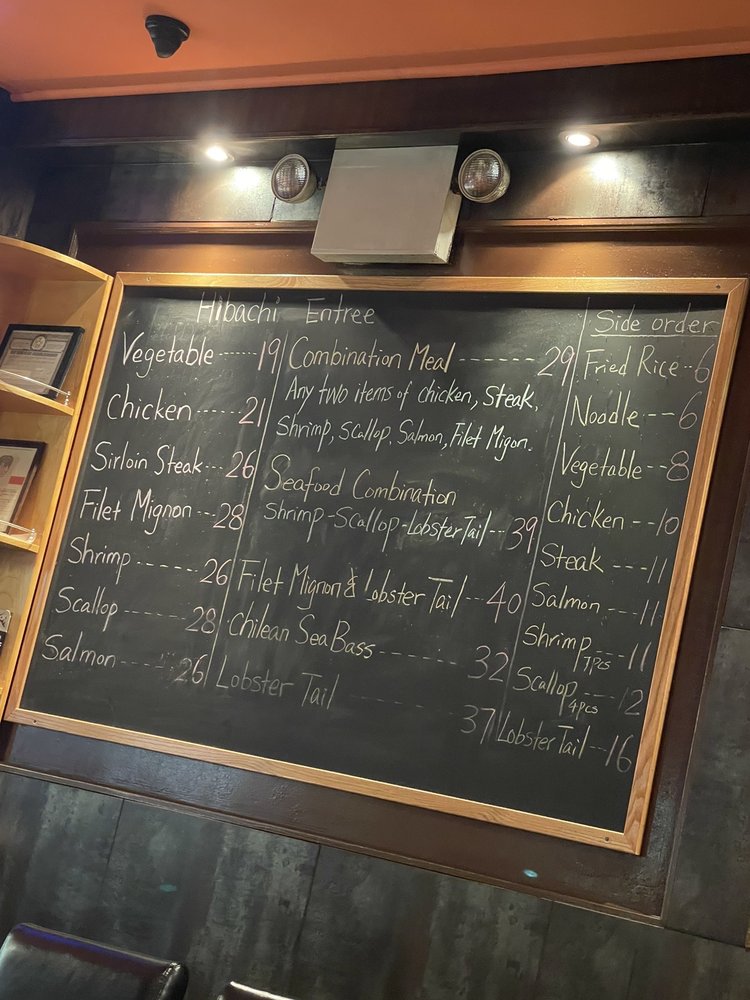 Hibachi Entree
Vegetable ------ 19
Chicken ----- 21
Sirloin Steak --- 26
Filet Mignon --- 28
Shrimp ------ 26
Scallop ------ 28
Salmon ------ 26
Combination Meal -------- 29
Any two items of chicken, Steak,
Shrimp, Scallop, Salmon, Filet Migon.
Seafood Combination
Shrimp-Scallop-Lobster Tail -- 39
Filet Mignon & Lobster Tail -- 40
Chilean Sea Bass -------- 32
Lobster Tail -------- 37
Side order
Fried Rice -- 6
Noodle --- 6
Vegetable -- 8
Chicken --- 10
Steak ---- 11
Salmon --- 11
Shrimp 7pcs --- 11
Scallop 4pcs --- 12
Lobster Tail -- 16